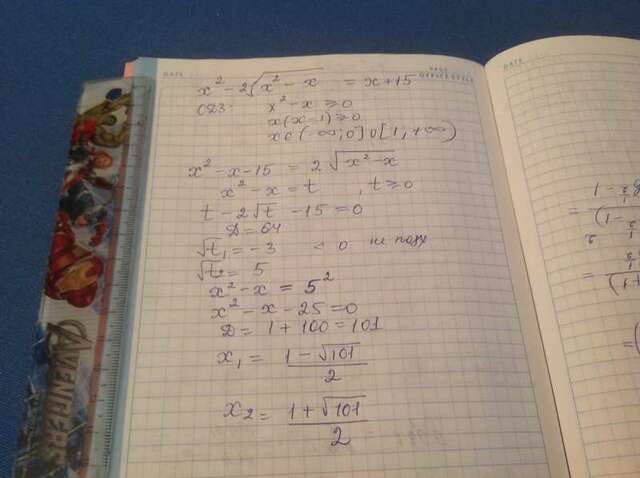 DATE
OFFICE STYLE
x² - 2√(x² - x) = x + 15
ОДЗ: x² - x ≥ 0
x(x-1) ≥ 0
x∈(-∞; 0] ∪ [1, +∞)
x² - x - 15 = 2√(x² - x)
x² - x = t , t ≥ 0
t - 2√t - 15 = 0
D = 64
√t₁ = -3 < 0 не подх
√t₂ = 5
x² - x = 5²
x² - x - 25 = 0
D = 1 + 100 = 101
x₁ = (1 - √101)/2
x₂ = (1 + √101)/2
AVENGERS
DATE